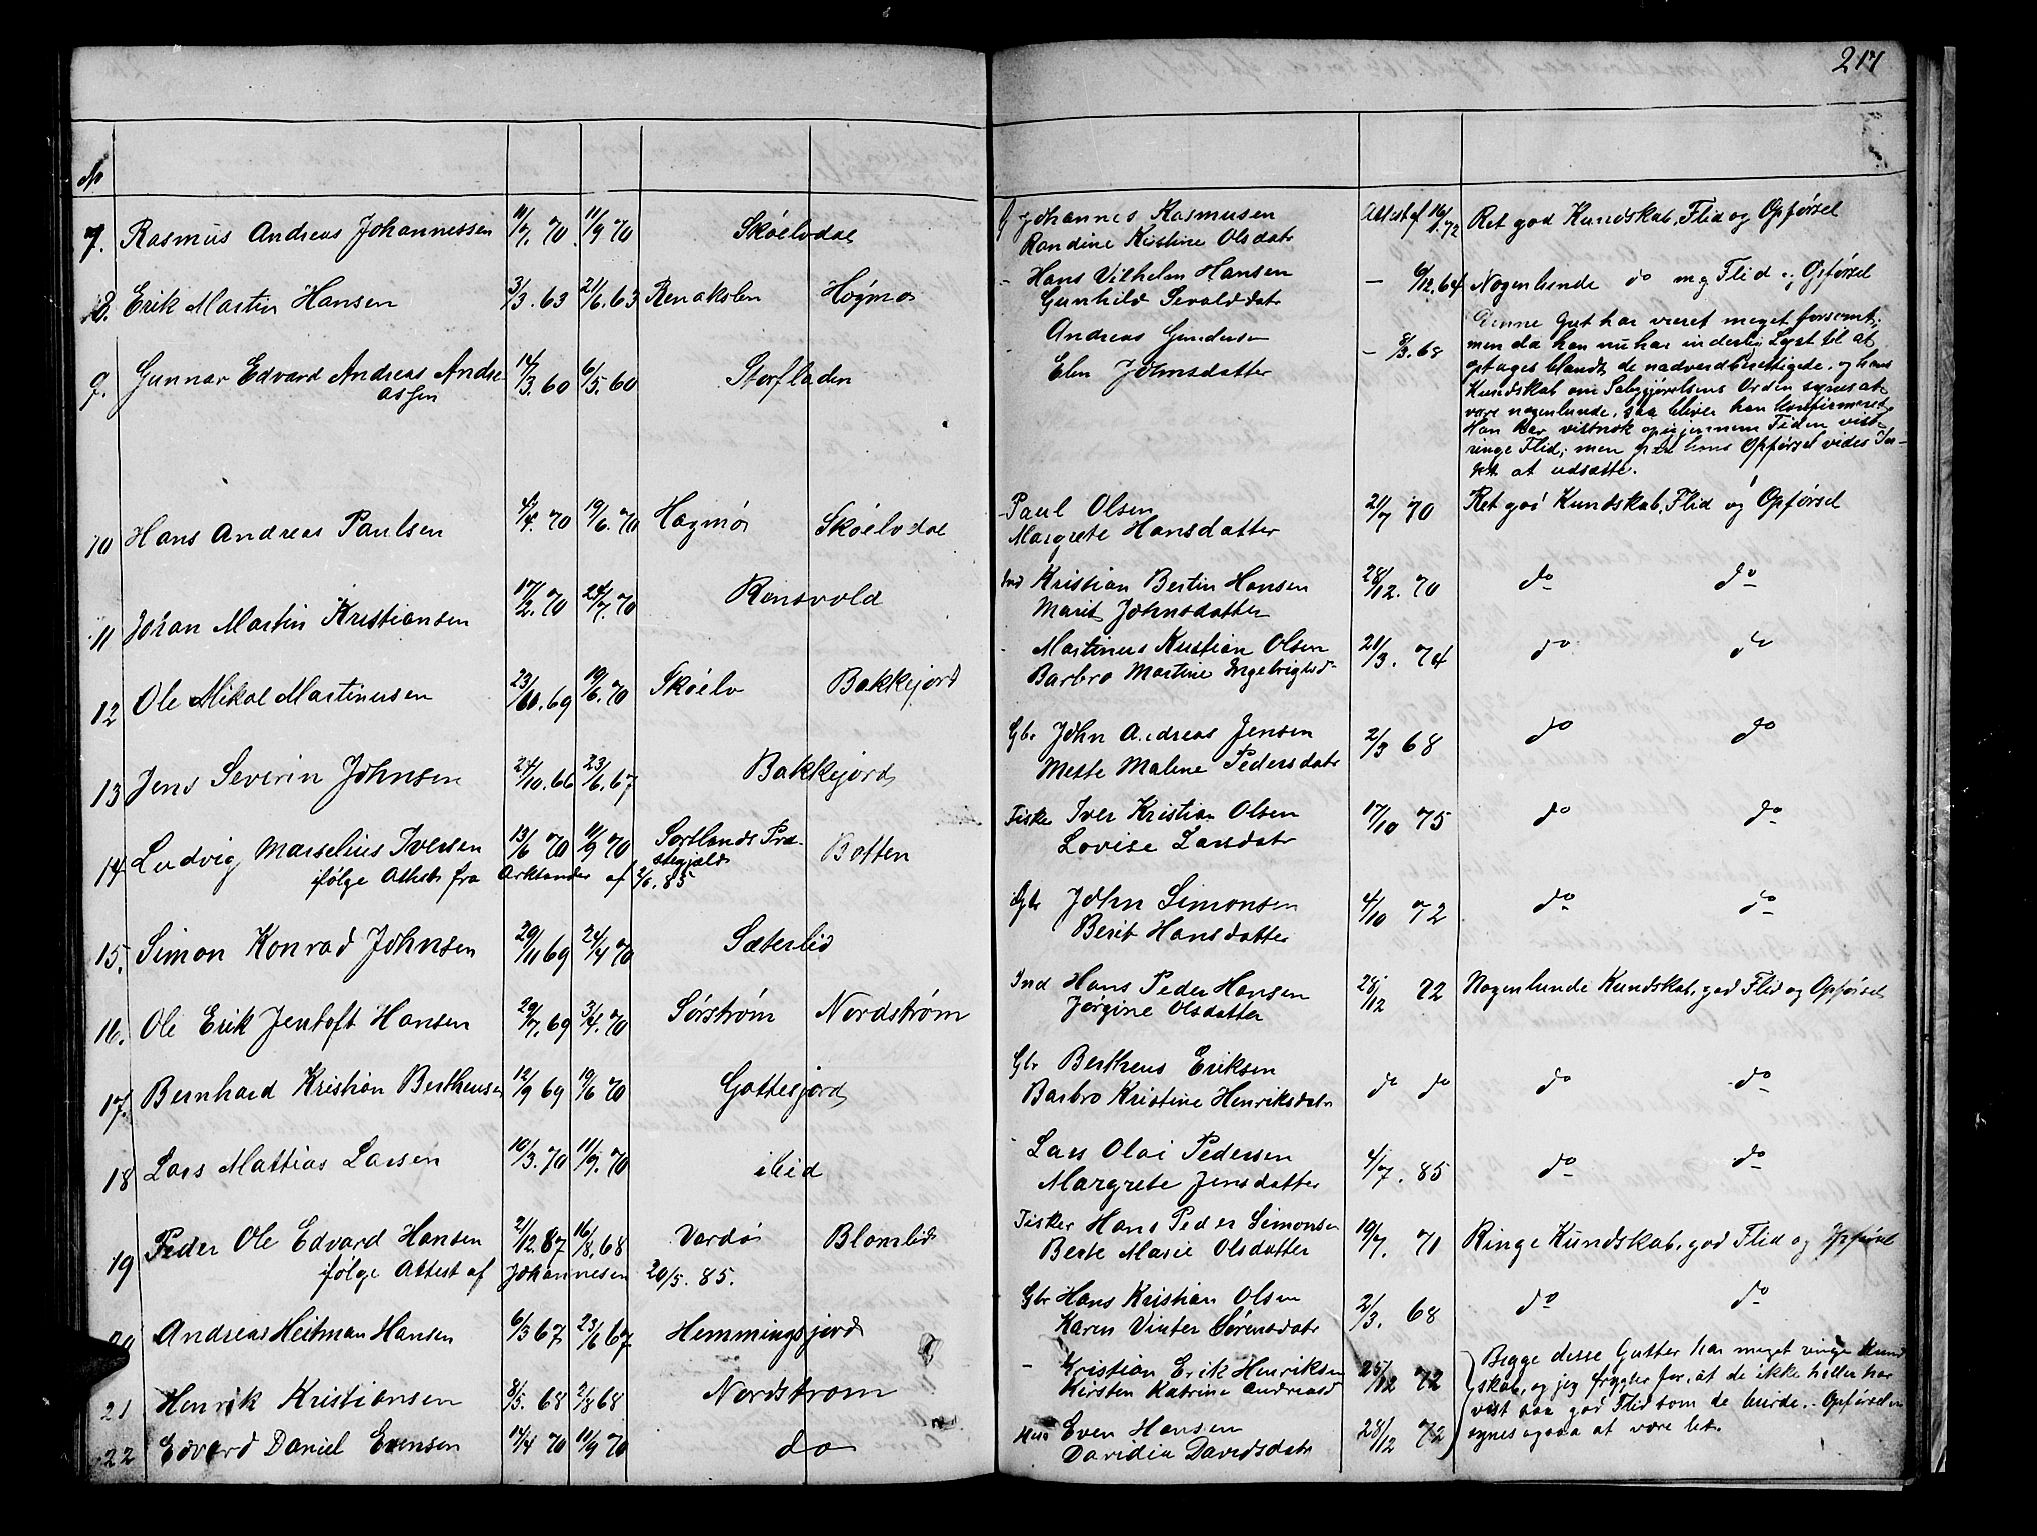 217
No
7. Rasmus Andreas Johannessen 11/7. 70 11/9 70 Skøelvdal G Johannes Rasmusen Attest af 16/1.72 Ret god Kundskab, Flid og Opførsel
Randine Kistine Olsdatr
8. Erik Martin Hansen 3/3. 63 21/6. 63 Renakslen Høgmo - Hans Vilhelm Hansen - 6/12.64 Nogenlunde do mg Flid og Opførsel
Gunhild Sivaldsdatr
9. Gunnar Edvard Andreas Andre- 14/3. 60 6/5. 60 Storfladen Andreas Gundersen - 8/3.68 Denne Gut har været meget forsømt;
assen Elen Johnsdatter men da han nu har inderlig Lyst til at
optages blandt de nadverdberettigede, og hans
Kundskab om Saliggjørelsens Orden synes at
være nogenlunde, saa bliver han konfirmeret.
Han har vistnok op igjennem Tiden vist
ringe Flid; men paa hans Opførsel vides In-
get at udsætte.
10 Hans Andreas Paulsen 4/4. 70 19/6. 70 Hogmo Skøelvdal - Paul Olsen 21/7 70 Ret god Kundskab, Flid og Opførsel
Margrete Hansdatter
11 Johan Martin Kristiansen 17/2. 70 24/7. 70 Rensvold Ind Kristian Bertin Hansen 28/12. 70 do do
Marit Johnsdatter
12 Ole Mikal Martinusen 23/10. 69 19/6. 70 Skøelv Bakkejord - Martinus Kristian Olsen 21/3. 74 do do
Barbro Martine Ingebrigtsd-
13 Jens Severin Johnsen 24/10. 66 23/6. 67 Bakkejord Gbr John Andreas Jensen 2/3 68 do do
Mette Malene Pedersdatr
14 Ludvig Marselius Iversen 13/6 70 11/9 70 Sortlands Præ- Botten Fisker Iver Kristian Olsen 17/10 75 do do
stegjæld Lovise Larsdatr
ifølge Attest fra Arktander af 2/6. 85
15. Simon Konrad Johnsen 29/11 69 24/4 70 Sæterlid Gbr John Simonsen 4/10 72 do do
Berit Hansdatter
16. Ole Erik Jentoft Hansen 29/7. 69 3/4. 70 Sørstrøm Nordstrøm Ind Hans Peder Hansen 28/12 72 Nogenlunde Kundskab, god Flid og Opførsel
Jørgine Olsdatter
17. Bernhard Kristian Bertheusen 12/9 69 19/6 70 Gottesjord Gbr Bertheus Eriksen do do do do
Barbro Kristine Henriksdatr
18 Lars Mattias Larsen 10/3. 70 11/9. 70 ibid - Lars Olai Pedersen 4/7. 85 do do
Margrete Jensdatter
19 Peder Ole Edvard Hansen 21/12. 67 16/8. 68 Vardø Blomlid Fisker Hans Peder Simonsen 19/7. 71 Ringe Kundskab, god Flid og Opførsel
ifølge Attest af Johannesen 20/5. 85. Berte Marie Olsdatter
20 Andreas Heitman Hansen 6/3 67 23/6 67 Hemmingsjord Gbr Hans Kristian Olsen 2/3. 68 do do
Karen Vinter Sørensdatr
21 Henrik Kristiansen 8/5. 68 2/8 68 Nordstrøm - Kristian Erik Henriksen 28/12 72 Begge desse Gutter har meget ringe Kund
Kirsten Katrine Andreasd skab, og jeg frygter for, at de ikke heller har
22 Edvard Daniel Evensen 14/4 70 11/9 70 do Hus Even Hansen 28/12 72 vist saa god Flid som de burde. - Opførselen
Daridia Davidsdatr synes ogsaa at være let.